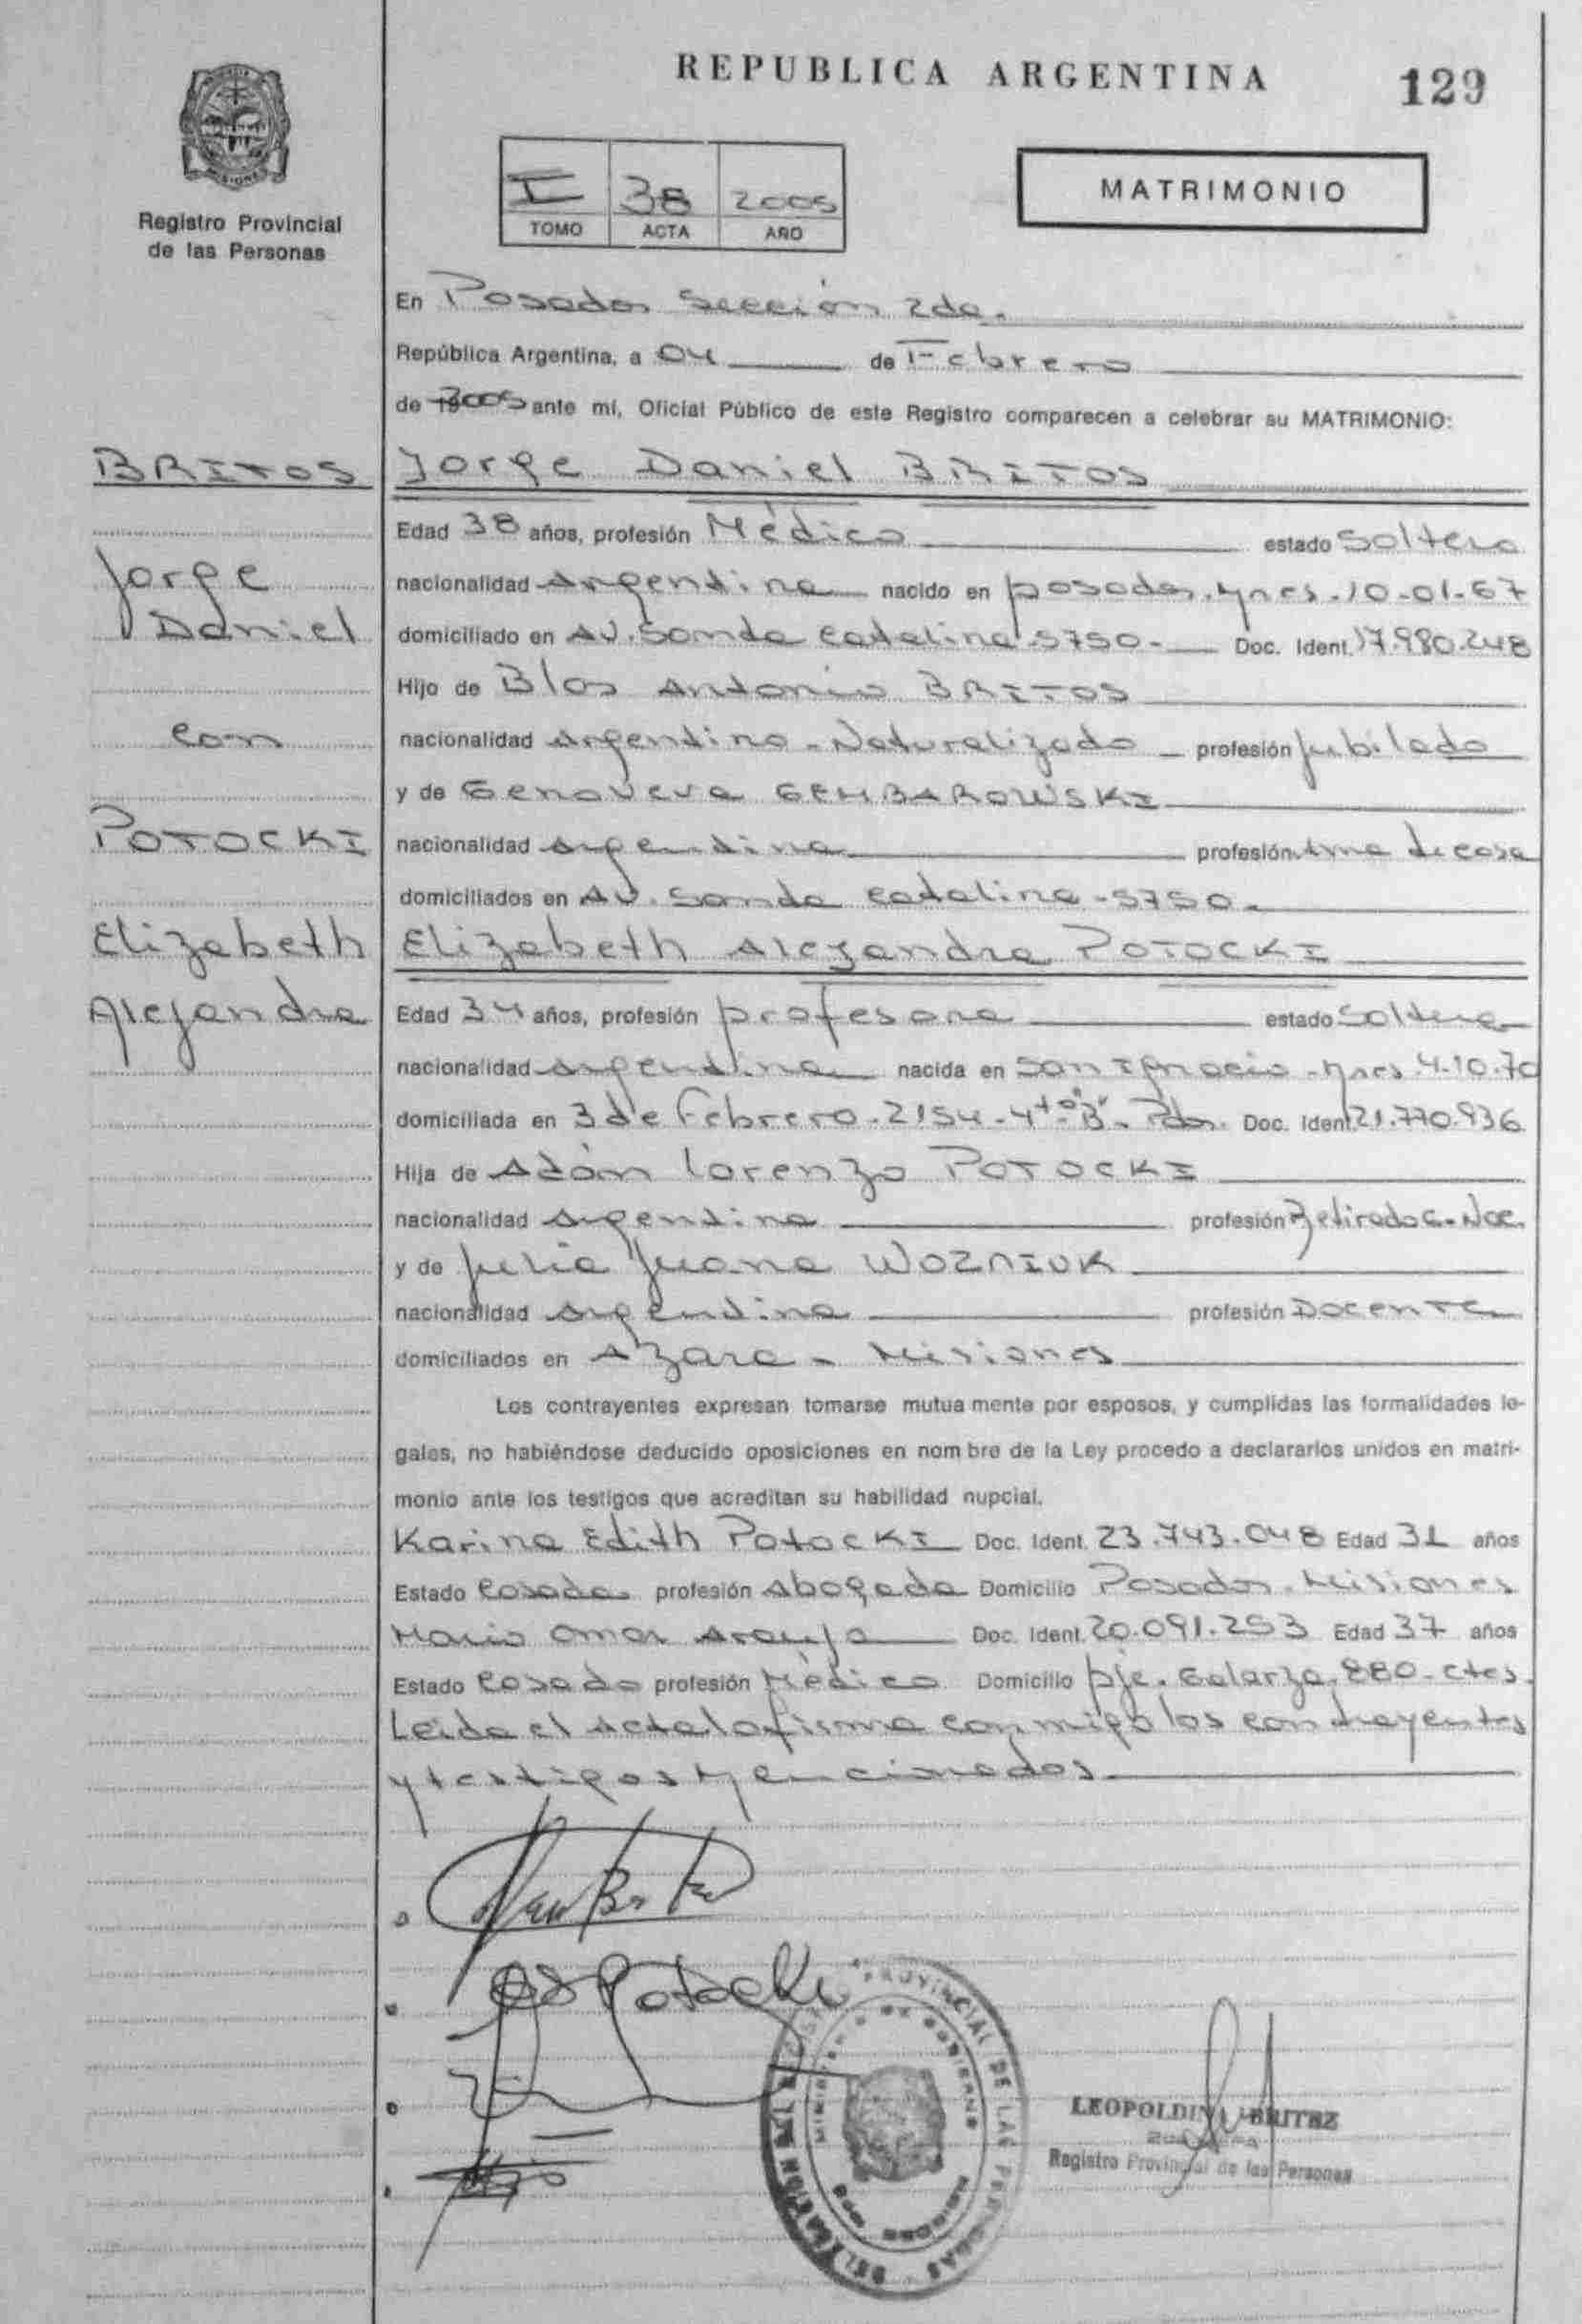 REPUBLICA ARGENTINA
129
MISIONES
Registro Provincial
de las Personas
I 38 2005
TOMO ACTA AÑO
MATRIMONIO
En Posadas Sección 2da.
República Argentina, a 04 de Febrero
de 2005 ante mí, Oficial Público de este Registro comparecen a celebrar su MATRIMONIO:
BRITOS
Jorge Daniel
con
POTOCKI
Elizabeth
Alejandra
Jorge Daniel BRITOS
Edad 38 años, profesión Médico estado Soltero
nacionalidad Argentina nacido en posadas. Mnes. 10-01-67
domiciliado en AV. Santa Catalina 5750- Doc. Ident. 17.980.248
Hijo de Blas Antonio BRITOS
nacionalidad Argentino-Naturalizado profesión Jubilado
y de Genoveva GEMBAROWSKI
nacionalidad Argentina profesión Ama de casa
domiciliados en AV. Santa Catalina -5750-
Elizabeth Alejandra POTOCKI
Edad 34 años, profesión profesora estado Soltera
nacionalidad Argentina nacida en San Ignacio - Mnes 4-10-70
domiciliada en 3 de Febrero-2154-4to "B"- Pdas. Doc. Ident. 21.770.936
Hija de Adán Lorenzo POTOCKI
nacionalidad Argentina profesión Retirado G.Nac.
y de Julia Juana WOZNIUK
nacionalidad Argentina profesión Docente
domiciliados en Azara - Misiones
Los contrayentes expresan tomarse mutua mente por esposos, y cumplidas las formalidades le-
gales, no habiéndose deducido oposiciones en nom bre de la Ley procedo a declararlos unidos en matri-
monio ante los testigos que acreditan su habilidad nupcial.
Karina Edith Potocki Doc. Ident. 23.743.048 Edad 31 años
Estado Casada profesión Abogada Domicilio Posadas-Misiones
Mario Omar Araujo Doc. Ident. 20.091.253 Edad 37 años
Estado Casado profesión Médico Domicilio pje. Galarza. 880-ctes.
Leída el Acta la firma conmigo los contrayentes
y testigos Mencionados
Potocki
PROVINCIAL DE LAS PERSONAS
LEOPOLDINA BRITEZ
Registro Provincial de las Personas